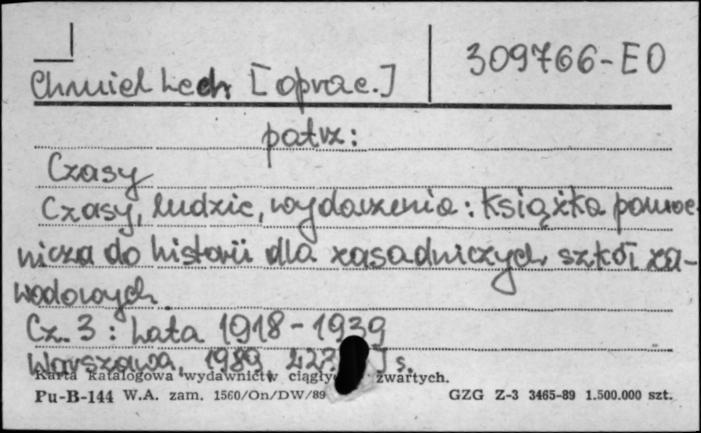 309766-EO
Chmiel Lech [oprac.]
patrz:
Czasy
Czasy, ludzie, wydarzenia: książka pomoc-
nicza do historii dla zasadniczych szkół za-
wodowych.
Cz. 3: Lata 1918-1939
Warszawa, 1989 s.
Karta katalogowa wydawnictw zwartych.
Pu-B-144 W.A. zam. 1560/On/DW/89 GZG Z-3 3465-89 1.500.000 szt.